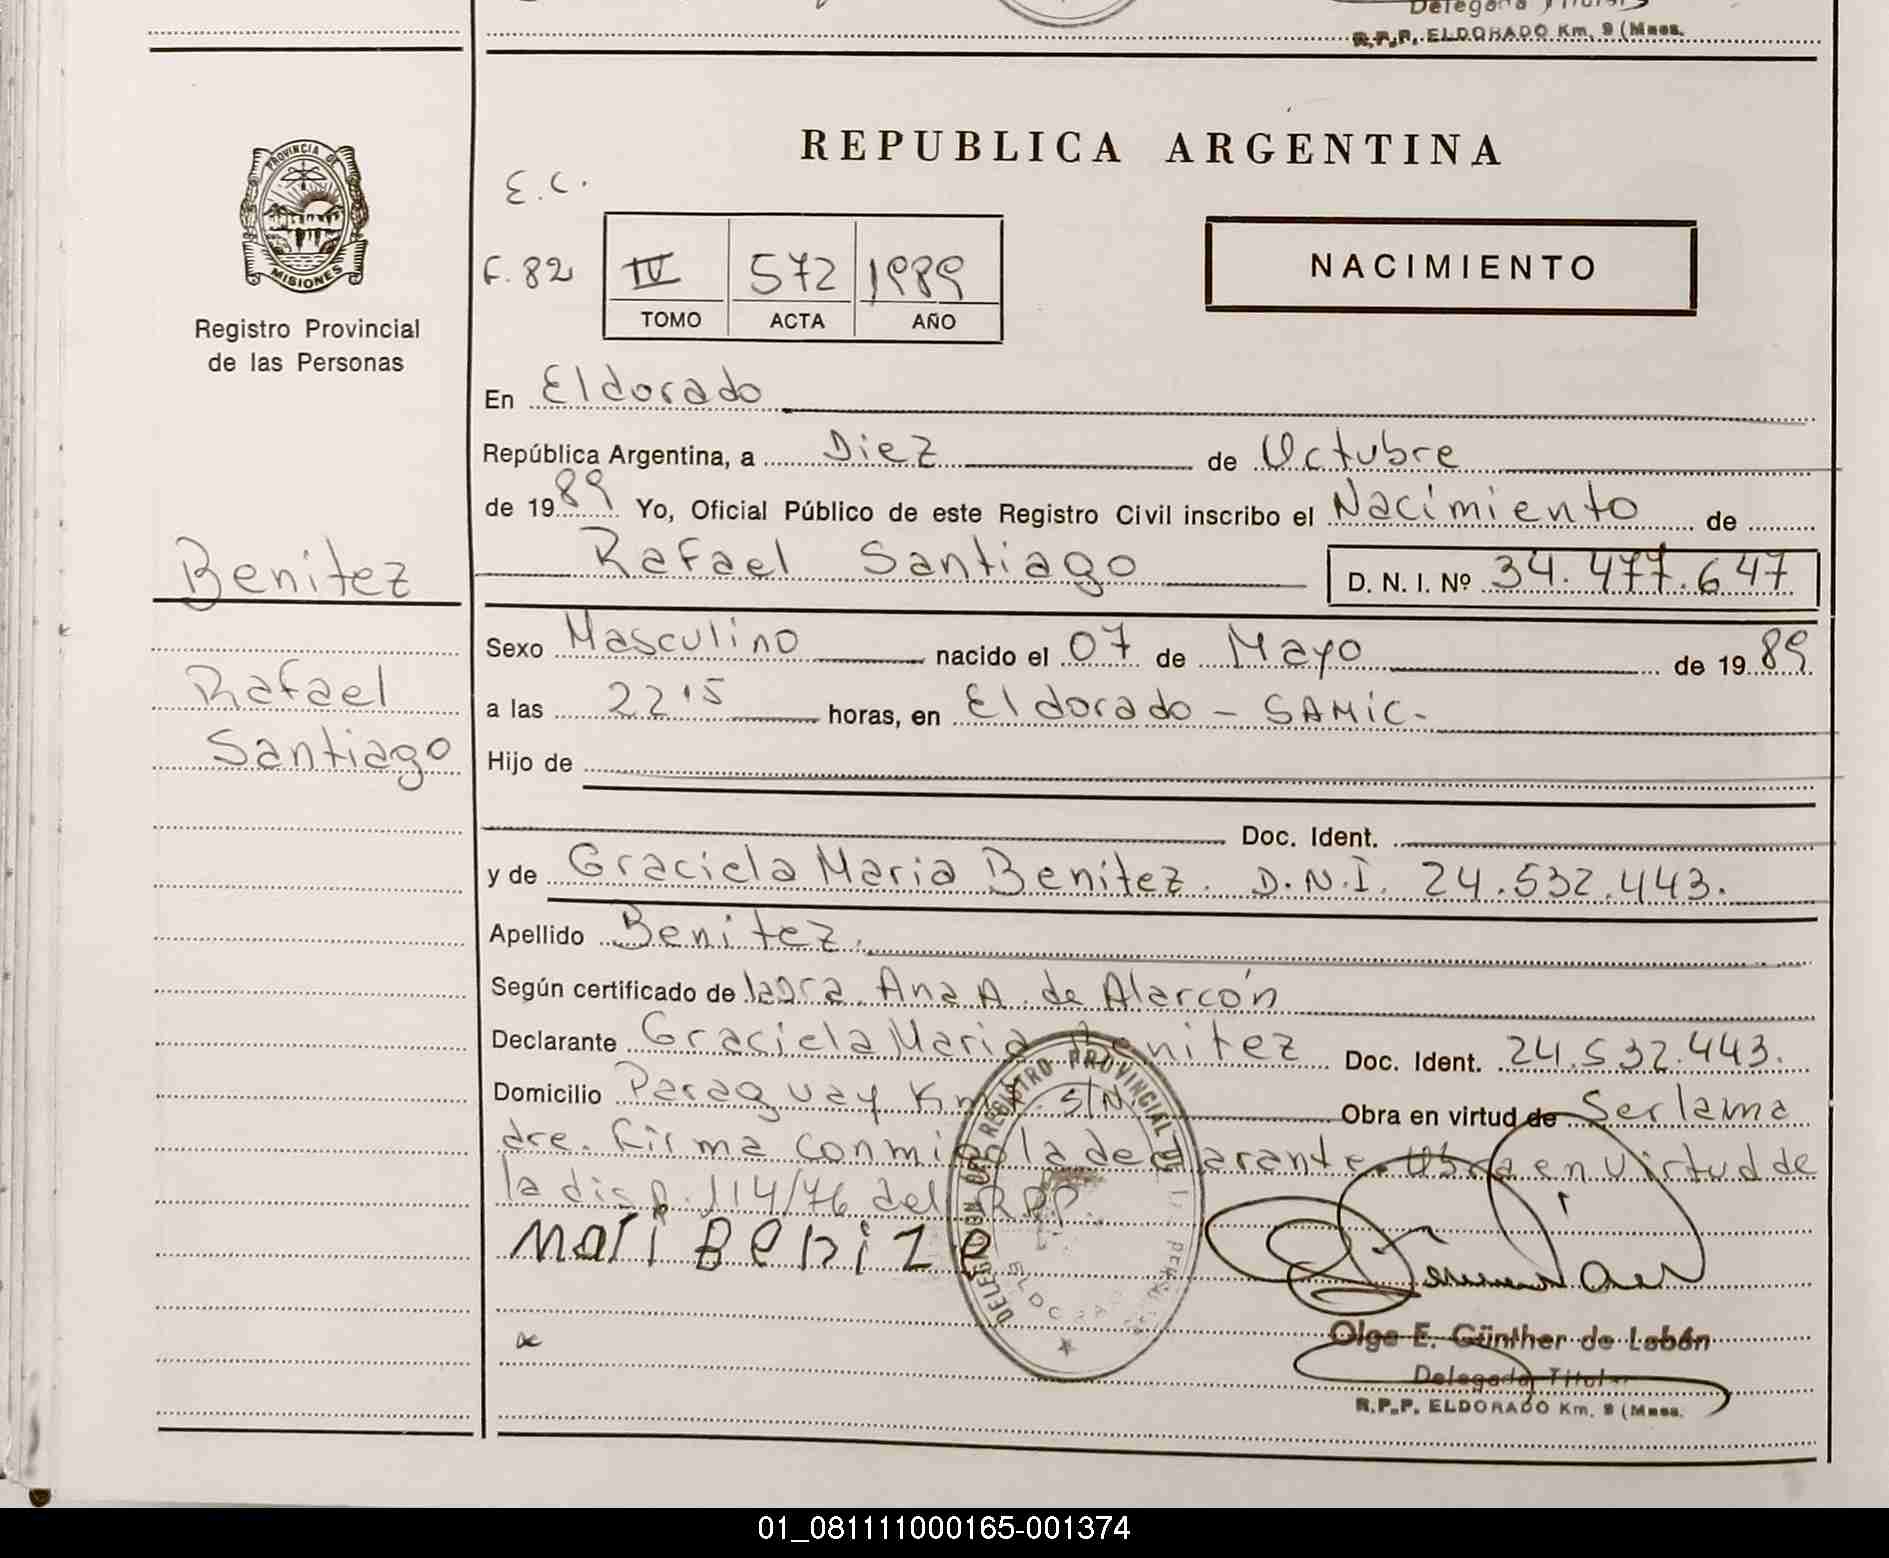 Delegada Titular
R.P.P. ELDORADO Km. 9 (Mnes.
PROVINCIA DE
MISIONES
Registro Provincial
de las Personas
REPUBLICA ARGENTINA
E.C.
F. 82
IV 572 1989
TOMO ACTA AÑO
NACIMIENTO
En Eldorado
República Argentina, a Diez de Octubre
de 1989 Yo, Oficial Público de este Registro Civil inscribo el Nacimiento de
Rafael Santiago D. N. I. Nº 34.477.647
Benitez
Rafael
Santiago
Sexo Masculino nacido el 07 de Mayo de 1989
a las 22 15 horas, en Eldorado - SAMIC.
Hijo de
Doc. Ident.
y de Graciela Maria Benitez. D.N.I. 24.532.443.
Apellido Benitez.
Según certificado de Ana A. de Alarcón
Declarante Graciela Maria Benitez Doc. Ident. 24.532.443.
Domicilio Paraguay S/N Obra en virtud de Ser la ma
dre. Firma conmigo la declarante. Obra en virtud de
la disp. 114/76 del RPP.
Mari Beniz
DELEGACION DEL REGISTRO PROVINCIAL
ELDORADO
Olga E. Günther de Labán
Delegada Titular
R.P.P. ELDORADO Km. 9 (Mnes.
01_081111000165-001374